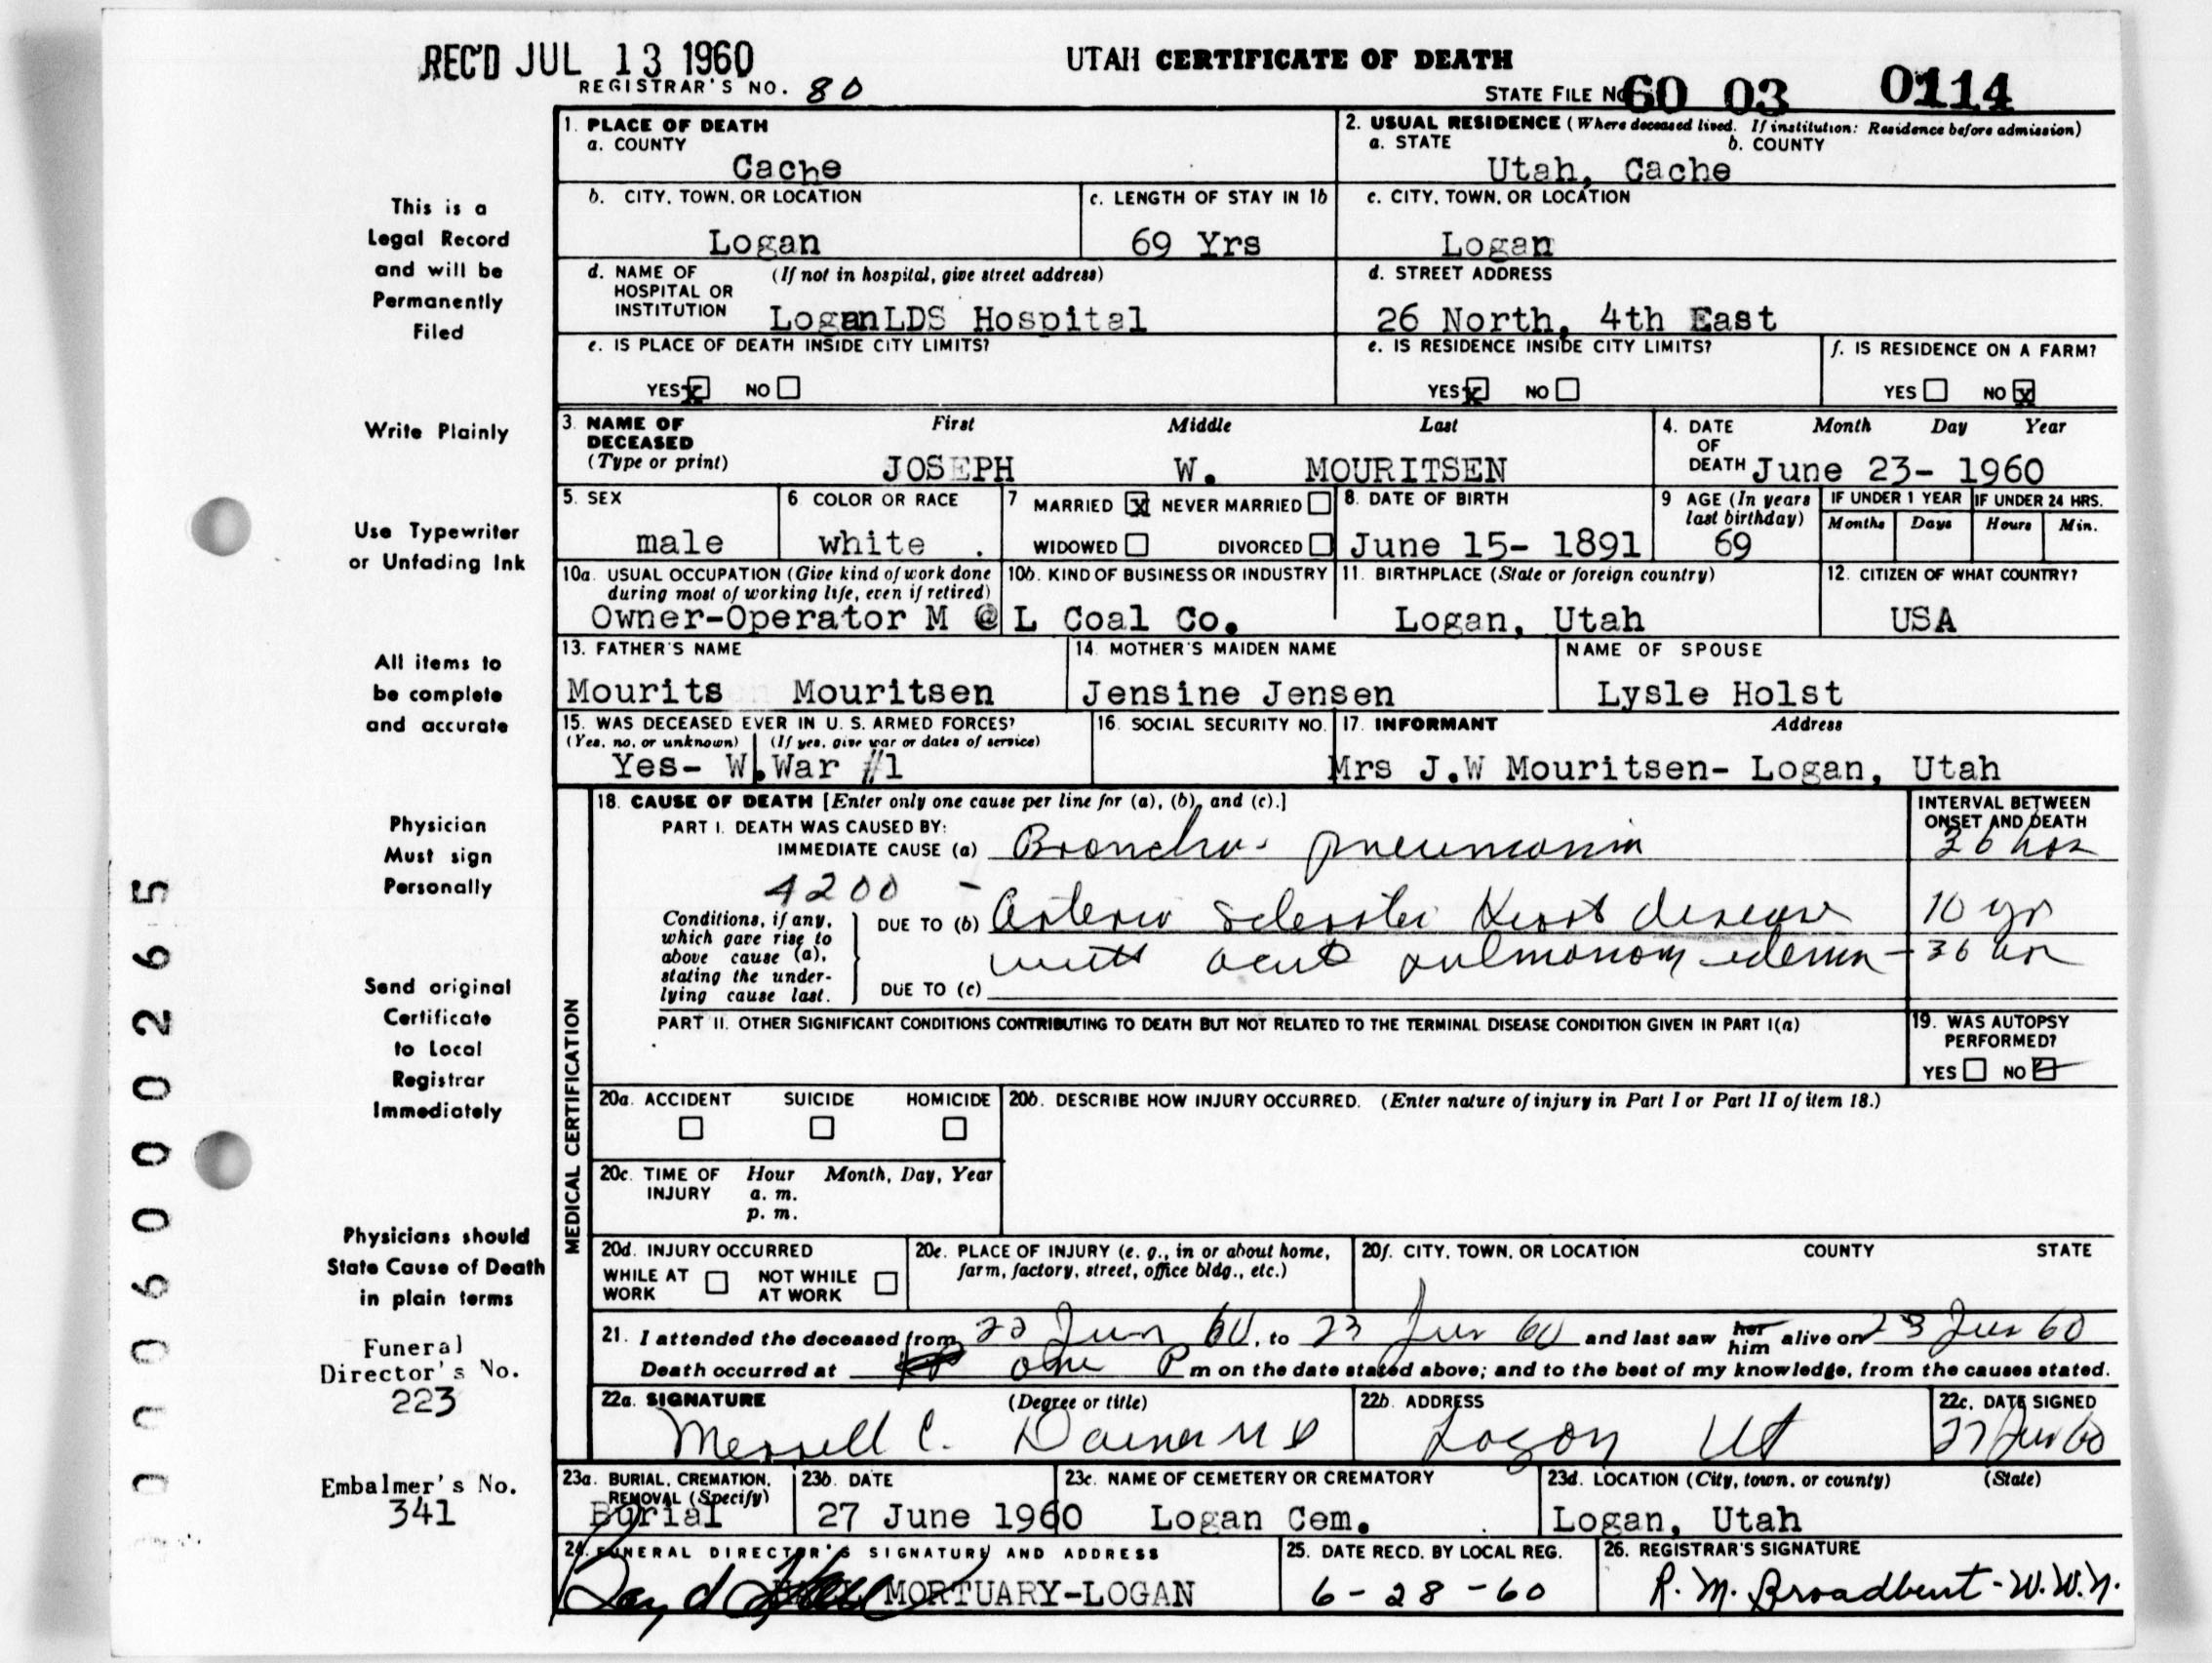 REC'D JUL 13 1960
UTAH CERTIFICATE OF DEATH
REGISTRAR'S NO. 80
STATE FILE No 60 03 0114
1. PLACE OF DEATH
a. COUNTY
Cache
2. USUAL RESIDENCE (Where deceased lived. If institution: Residence before admission)
a. STATE b. COUNTY
Utah, Cache
b. CITY, TOWN, OR LOCATION
Logan
c. LENGTH OF STAY IN 1b
69 Yrs
c. CITY, TOWN, OR LOCATION
Logan
d. NAME OF HOSPITAL OR INSTITUTION (If not in hospital, give street address)
LoganLDS Hospital
d. STREET ADDRESS
26 North, 4th East
e. IS PLACE OF DEATH INSIDE CITY LIMITS?
YES x NO
e. IS RESIDENCE INSIDE CITY LIMITS?
YES x NO
f. IS RESIDENCE ON A FARM?
YES NO x
3. NAME OF DECEASED (Type or print)
First Middle Last
JOSEPH W. MOURITSEN
4. DATE OF DEATH Month Day Year
June 23- 1960
5. SEX
male
6. COLOR OR RACE
white .
7 MARRIED x NEVER MARRIED
WIDOWED DIVORCED
8. DATE OF BIRTH
June 15- 1891
9 AGE (In years last birthday)
69
IF UNDER 1 YEAR IF UNDER 24 HRS.
Months Days Hours Min.
10a. USUAL OCCUPATION (Give kind of work done during most of working life, even if retired)
10b. KIND OF BUSINESS OR INDUSTRY
Owner-Operator M @ L Coal Co.
11. BIRTHPLACE (State or foreign country)
Logan, Utah
12. CITIZEN OF WHAT COUNTRY?
USA
13. FATHER'S NAME
Mourits Mouritsen
14. MOTHER'S MAIDEN NAME
Jensine Jensen
NAME OF SPOUSE
Lysle Holst
15. WAS DECEASED EVER IN U. S. ARMED FORCES?
(Yes, no, or unknown) (If yes, give war or dates of service)
Yes- W.War #1
16. SOCIAL SECURITY NO.
17. INFORMANT Address
Mrs J.W Mouritsen- Logan, Utah
MEDICAL CERTIFICATION
18. CAUSE OF DEATH [Enter only one cause per line for (a), (b), and (c).]
INTERVAL BETWEEN ONSET AND DEATH
PART I. DEATH WAS CAUSED BY:
IMMEDIATE CAUSE (a) Broncho- pneumonia 36 hrs
4200 -
Conditions, if any, which gave rise to above cause (a), stating the underlying cause last.
DUE TO (b) Arterio sclerotic Heart disease 10 yr
with acute pulmonary edema - 36 hr
DUE TO (c)
PART II. OTHER SIGNIFICANT CONDITIONS CONTRIBUTING TO DEATH BUT NOT RELATED TO THE TERMINAL DISEASE CONDITION GIVEN IN PART I(a)
19. WAS AUTOPSY PERFORMED?
YES NO
20a. ACCIDENT SUICIDE HOMICIDE
20b. DESCRIBE HOW INJURY OCCURRED. (Enter nature of injury in Part I or Part II of item 18.)
20c. TIME OF INJURY Hour Month, Day, Year
a. m.
p. m.
20d. INJURY OCCURRED
WHILE AT WORK NOT WHILE AT WORK
20e. PLACE OF INJURY (e. g., in or about home, farm, factory, street, office bldg., etc.)
20f. CITY, TOWN, OR LOCATION COUNTY STATE
21. I attended the deceased from 22 Jun 60, to 23 Jun 60 and last saw her him alive on 23 Jun 60
Death occurred at one P m on the date stated above; and to the best of my knowledge, from the causes stated.
22a. SIGNATURE (Degree or title)
Merrell C. Daines MD
22b. ADDRESS
Logan Ut
22c. DATE SIGNED
27 Jun 60
23a. BURIAL, CREMATION, REMOVAL (Specify)
Burial
23b. DATE
27 June 1960
23c. NAME OF CEMETERY OR CREMATORY
Logan Cem.
23d. LOCATION (City, town, or county) (State)
Logan, Utah
24. FUNERAL DIRECTOR'S SIGNATURE AND ADDRESS
MORTUARY-LOGAN
25. DATE RECD. BY LOCAL REG.
6-28-60
26. REGISTRAR'S SIGNATURE
R. M. Broadbent - W.W.N.
This is a
Legal Record
and will be
Permanently
Filed
Write Plainly
Use Typewriter
or Unfading Ink
All items to
be complete
and accurate
Physician
Must sign
Personally
Send original
Certificate
to Local
Registrar
Immediately
Physicians should
State Cause of Death
in plain terms
Funeral
Director's No.
223
Embalmer's No.
341